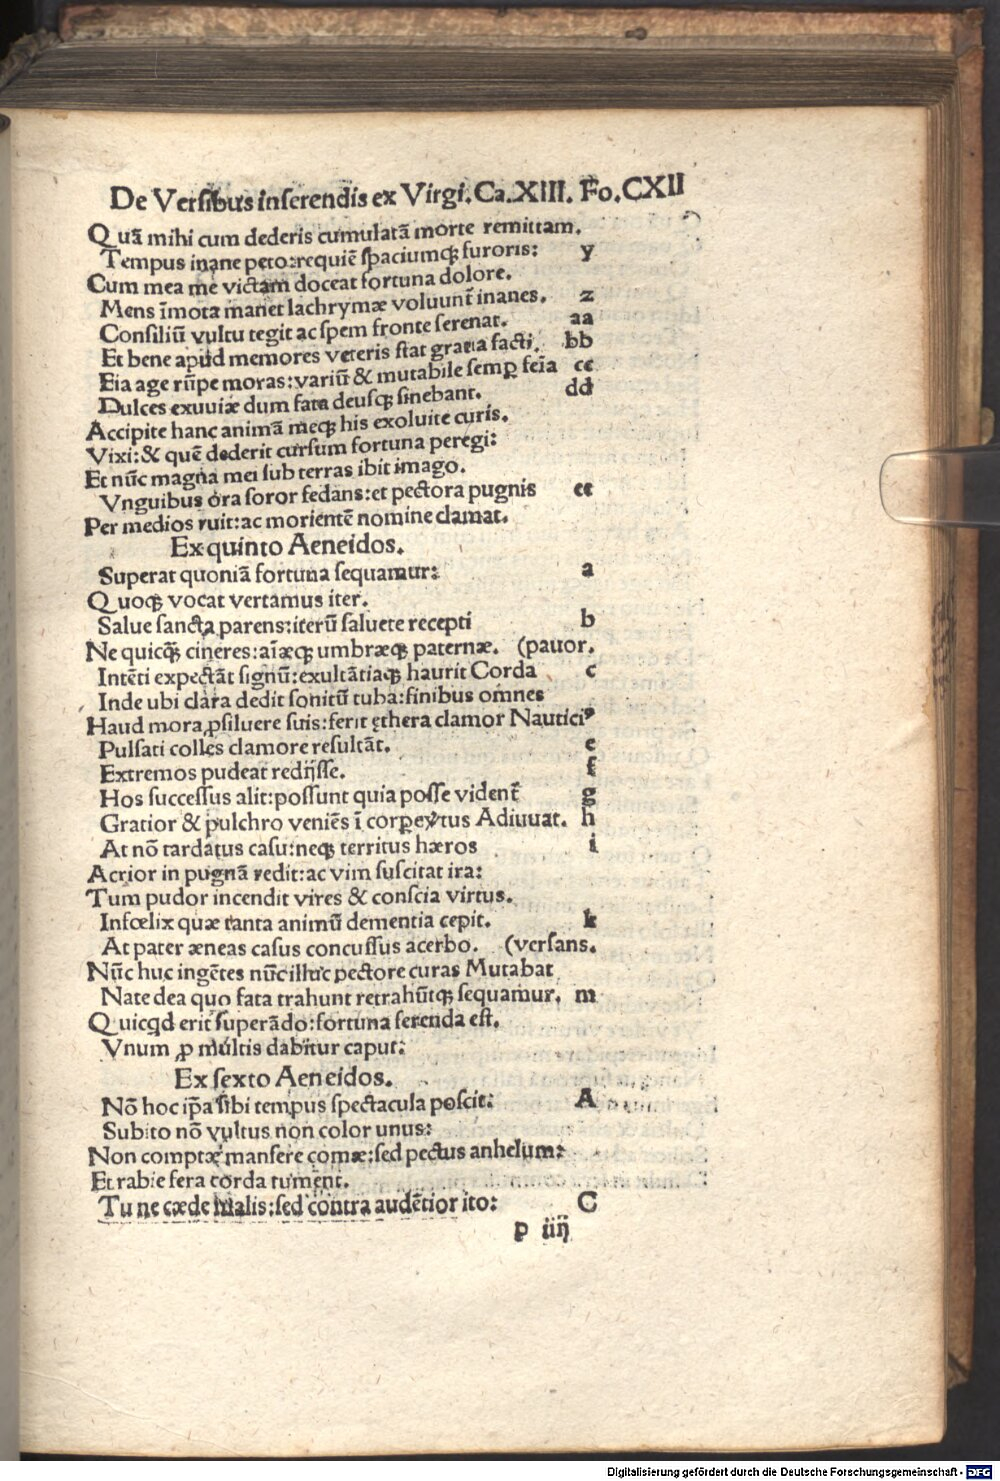 De Versibus inserendis ex Virgi. Ca. XIII. Fo. CXII
Quā mihi cum dederis cumulatā morte remittam.
Tempus inane peto: requiē spaciumq; furoris: y
Cum mea me victam doceat fortuna dolore.
Mens īmota manet lachrymæ voluunt inanes. z
Consiliū vultu tegit ac spem fronte serenat. aa
Et bene apud memores veteris stat gratia facti. bb
Eia age rūpe moras: variū & mutabile semꝑ feīa cc
Dulces exuuiæ dum fata deusq; sinebant. dd
Accipite hanc animā meq; his exoluite curis.
Vixi: & quē dederit cursum fortuna peregi:
Et nūc magna mei sub terras ibit imago.
Vnguibus ora soror fedans: et pectora pugnis ee
Per medios ruit: ac morientē nomine clamat.
Ex quinto Aeneidos.
Superat quoniā fortuna sequamur: a
Quoq; vocat vertamus iter.
Salue sancta parens: iterū saluete recepti b
Ne quicq̄; cineres: aīæq; umbræq; paternæ. (pauor.
Intēti expectāt signū: exultātiaq; haurit Corda c
Inde ubi clara dedit sonitū tuba: finibus omnes
Haud mora ꝓsiluere suis: ferit ęthera clamor Nauticꝰ
Pulsati colles clamore resultāt. e
Extremos pudeat redijsse. f
Hos successus alit: possunt quia posse vident̄ g
Gratior & pulchro veniēs ī corꝑe ỽtus Adiuuat. h
At nō tardatus casu: neq; territus hæros i
Acrior in pugnā redit: ac vim suscitat ira:
Tum pudor incendit vires & conscia virtus.
Infœlix quæ tanta animū dementia cepit. k
At pater æneas casus concussus acerbo. (versans.
Nūc huc ingētes nūc illuc pectore curas Mutabat
Nate dea quo fata trahunt retrahūtq; sequamur. m
Quicqd erit superādo: fortuna ferenda est.
Vnum ꝓ multis dabitur caput:
Ex sexto Aeneidos.
Nō hoc ip̄a sibi tempus spectacula poscit: A
Subito nō vultus non color unus:
Non comptæ mansere comæ: sed pectus anhelum:
Et rabie fera corda tument.
Tu ne cæde malis: sed contra audētior ito: C
p iiij
Digitalisierung gefördert durch die Deutsche Forschungsgemeinschaft - DFG